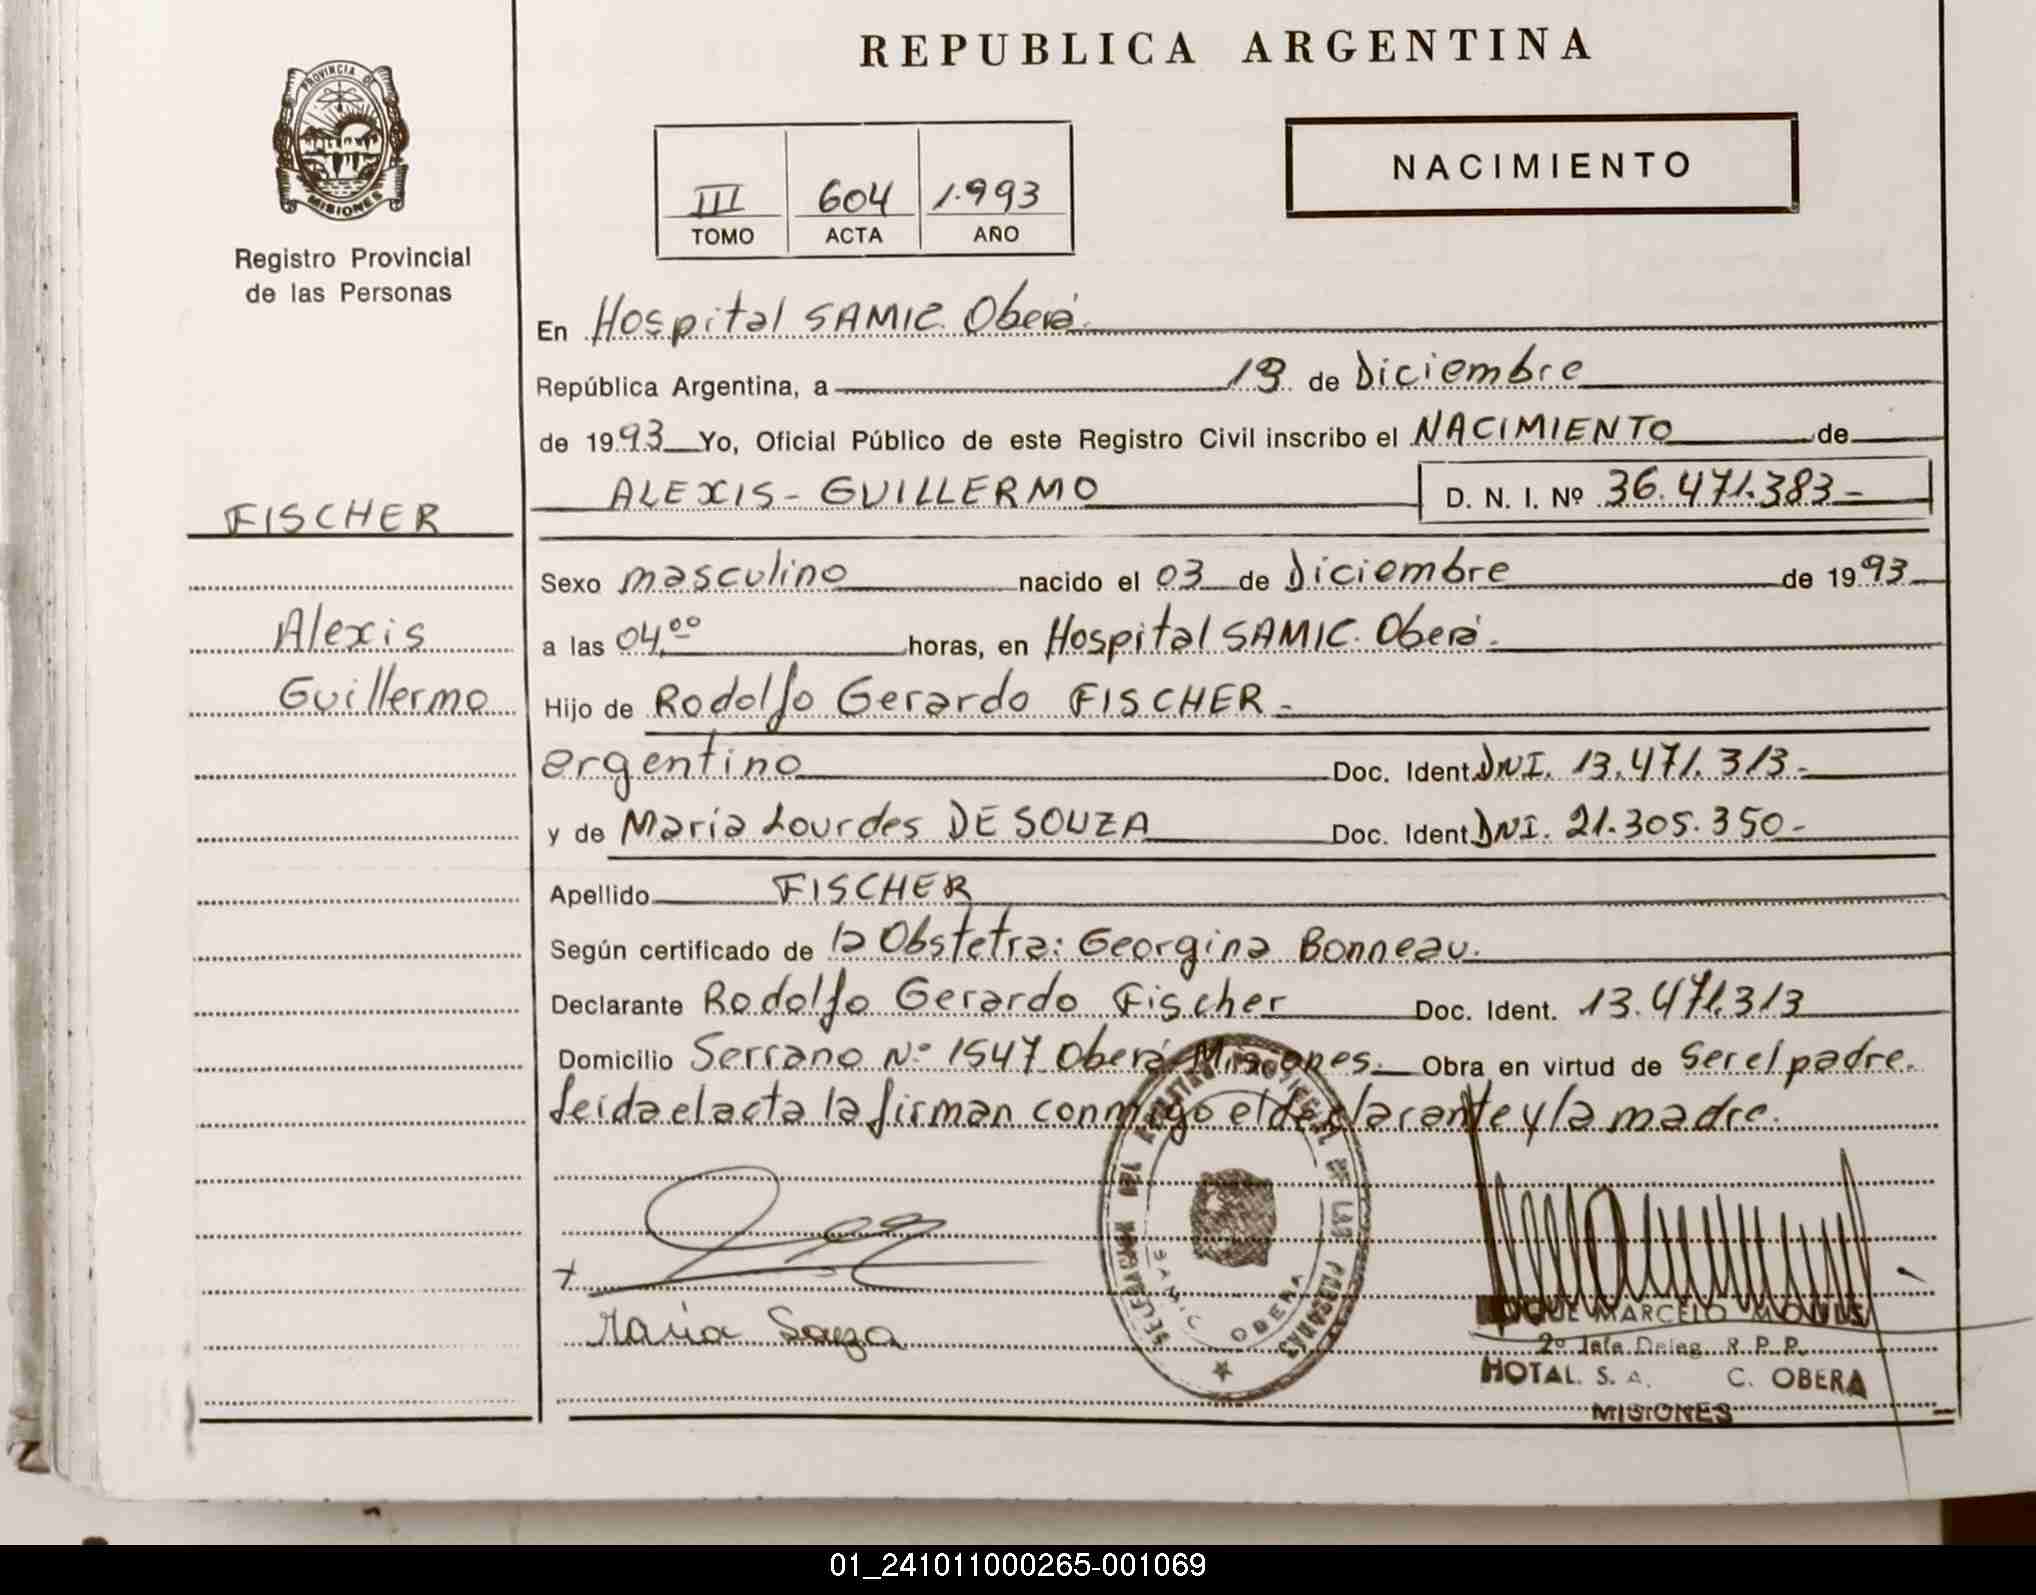 REPUBLICA ARGENTINA
PROVINCIA DE
MISIONES
Registro Provincial
de las Personas
III 604 1.993
TOMO ACTA AÑO
NACIMIENTO
En Hospital SAMIC. Oberá.
República Argentina, a 13 de Diciembre
de 1993 Yo, Oficial Público de este Registro Civil inscribo el NACIMIENTO de
ALEXIS - GUILLERMO D. N. I. Nº 36.471.383-
FISCHER
Sexo masculino nacido el 03 de Diciembre de 1993
Alexis
a las 04,00 horas, en Hospital SAMIC. Oberá.
Guillermo
Hijo de Rodolfo Gerardo FISCHER -
argentino Doc. Ident. DNI. 13.471.313-
y de Maria Lourdes DE SOUZA Doc. Ident. DNI. 21.305.350-
Apellido FISCHER
Según certificado de la Obstetra: Georgina Bonneau.
Declarante Rodolfo Gerardo Fischer Doc. Ident. 13.471.313
Domicilio Serrano Nº 1547 Oberá Misiones. Obra en virtud de ser el padre.
Leida el acta la firman conmigo el declarante y la madre.
DELEGACION REGISTRO PROVINCIAL DE LAS PERSONAS
SAMIC OBERA
Maria Souza
ROQUE MARCELO
2º Jefe Deleg. R. P. P.
HOTAL. S. A. C. OBERA
MISIONES
01_241011000265-001069